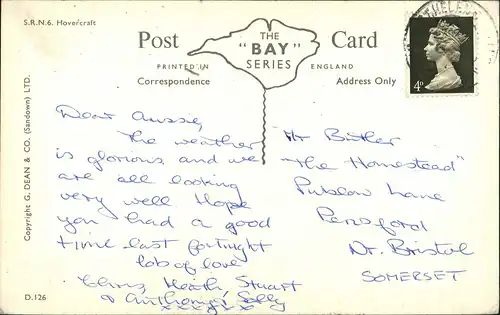 S.R.N.6. Hovercraft
Post Card
THE
"BAY"
SERIES
PRINTED IN ENGLAND
Correspondence
Address Only
4D
Dear Aussie,
The weather
is glorious and we
are all looking
very well Hope
you had a good
time last fortnight
lots of love
Chris, Heath, Stuart
& Anthony, Sally
x x x x x x
Mr Butler
"The Homestead"
Publow Lane
Pensford
Nr. Bristol
SOMERSET
Copyright G. DEAN & CO. (Sandown) LTD.
D.126